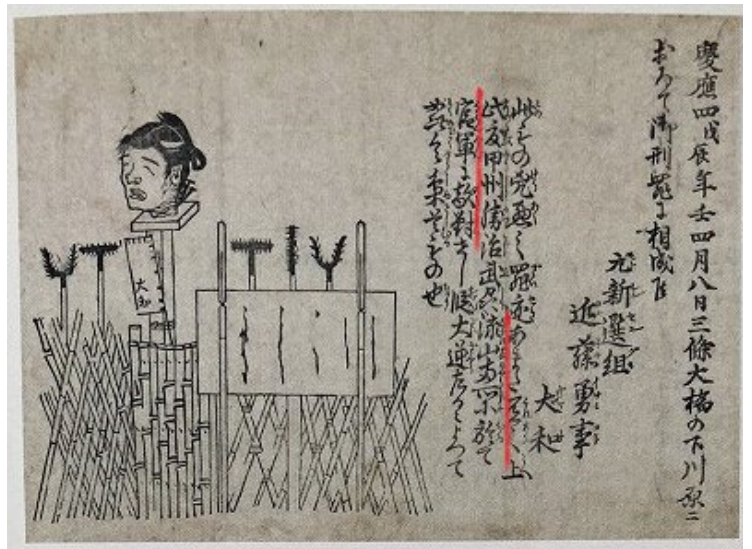 慶應四戊辰年壬四月八日三條大橋の下川原ニ
おゐて御刑罪に相成候
元新選組
近藤勇事
大和
此ものの兇悪之罪迹あまた有之上
此度甲州勝沼武州流山におゐて
官軍に敵対せし段大逆たるによつて
如是令梟首もの也
大和